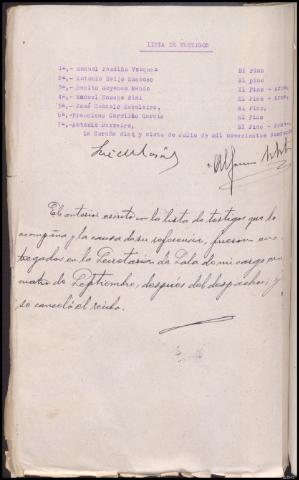 LISTA DE TESTIGOS
1º,- Manuel Pandiño Vazquez El Pino
2º,- Antonio Seijo El Pino
3º,- Benito Goyanes El Pino - Arzua,
4º,- Manuel Concha Rial El Pino - Arzua,
5º,- José Gonzalo El Pino,
6º,- Francisco Carrillo García El Pino
7º,- Antonio Barreiro, El Pino
La Coruña diez y siete de Julio de mil novecientos
El anterior escrito con la lista de testigos que lo
acompaña y la causa de su referencia, fueron en-
tregados en la Secretaria de Sala de mi cargo en
cuatro de Septiembre, despues del despacho; y
se canceló el recibo.